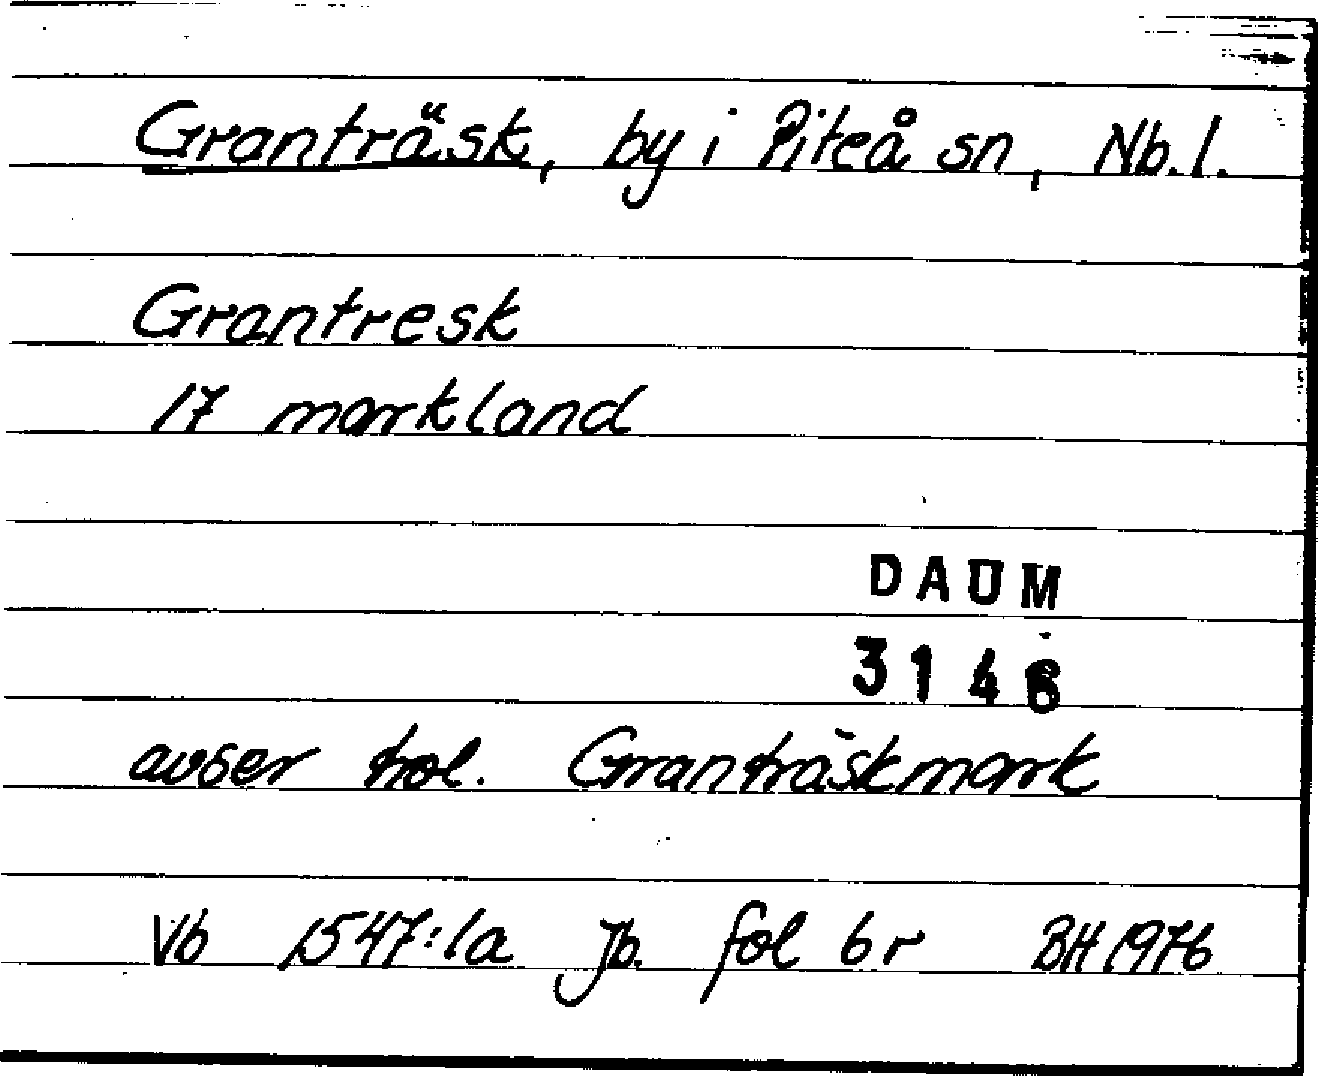 Granträsk, by i Piteå sn, Nb. l.
Grantresk
17 markland
DAUM
3146
avser trol. Granträskmark
Vb 1547:1a Jb. fol 6 r BH 1976